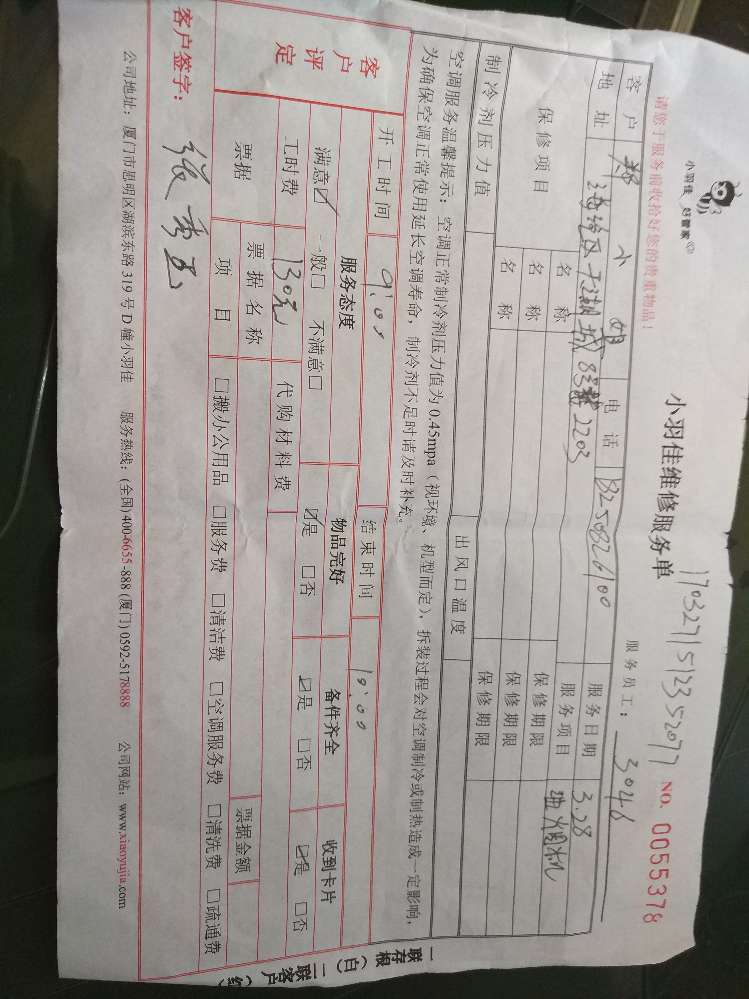 小羽佳 好管家
小羽佳维修服务单
1703271512352077
NO. 0055378
请您于服务前收拾好您的贵重物品！
服务员工：3046
客户 郑小姐 电话 13250826100 服务日期 3.28
地址 海沧区天湖城83 2203 服务项目 油烟机
保修项目 名称 保修期限
名称 保修期限
名称 保修期限
制冷剂压力值 出风口温度
空调服务温馨提示：空调正常制冷剂压力值为0.45mpa（视环境、机型而定），拆装过程会对空调制冷或制热造成一定影响，
为确保空调正常使用延长空调寿命，制冷剂不足时请及时补充。
开工时间 9:00 结束时间 10:00
客户评定 服务态度 物品完好 备件齐全 收到卡片
满意☑ 一般□ 不满意□ ☑是 □否 ☑是 □否 ☑是 □否
工时费 130元 代购材料费
票据 票据名称 票据金额
项目 □搬办公用品 □服务费 □清洁费 □空调服务费 □清洗费 □疏通费
客户签字：张秀玉
公司地址：厦门市思明区湖滨东路319号D幢小羽佳 服务热线：(全国)400-6655-888 (厦门) 0592-5178888 公司网站：www.xiaoyujia.com
一联存根（白） 二联客户（红